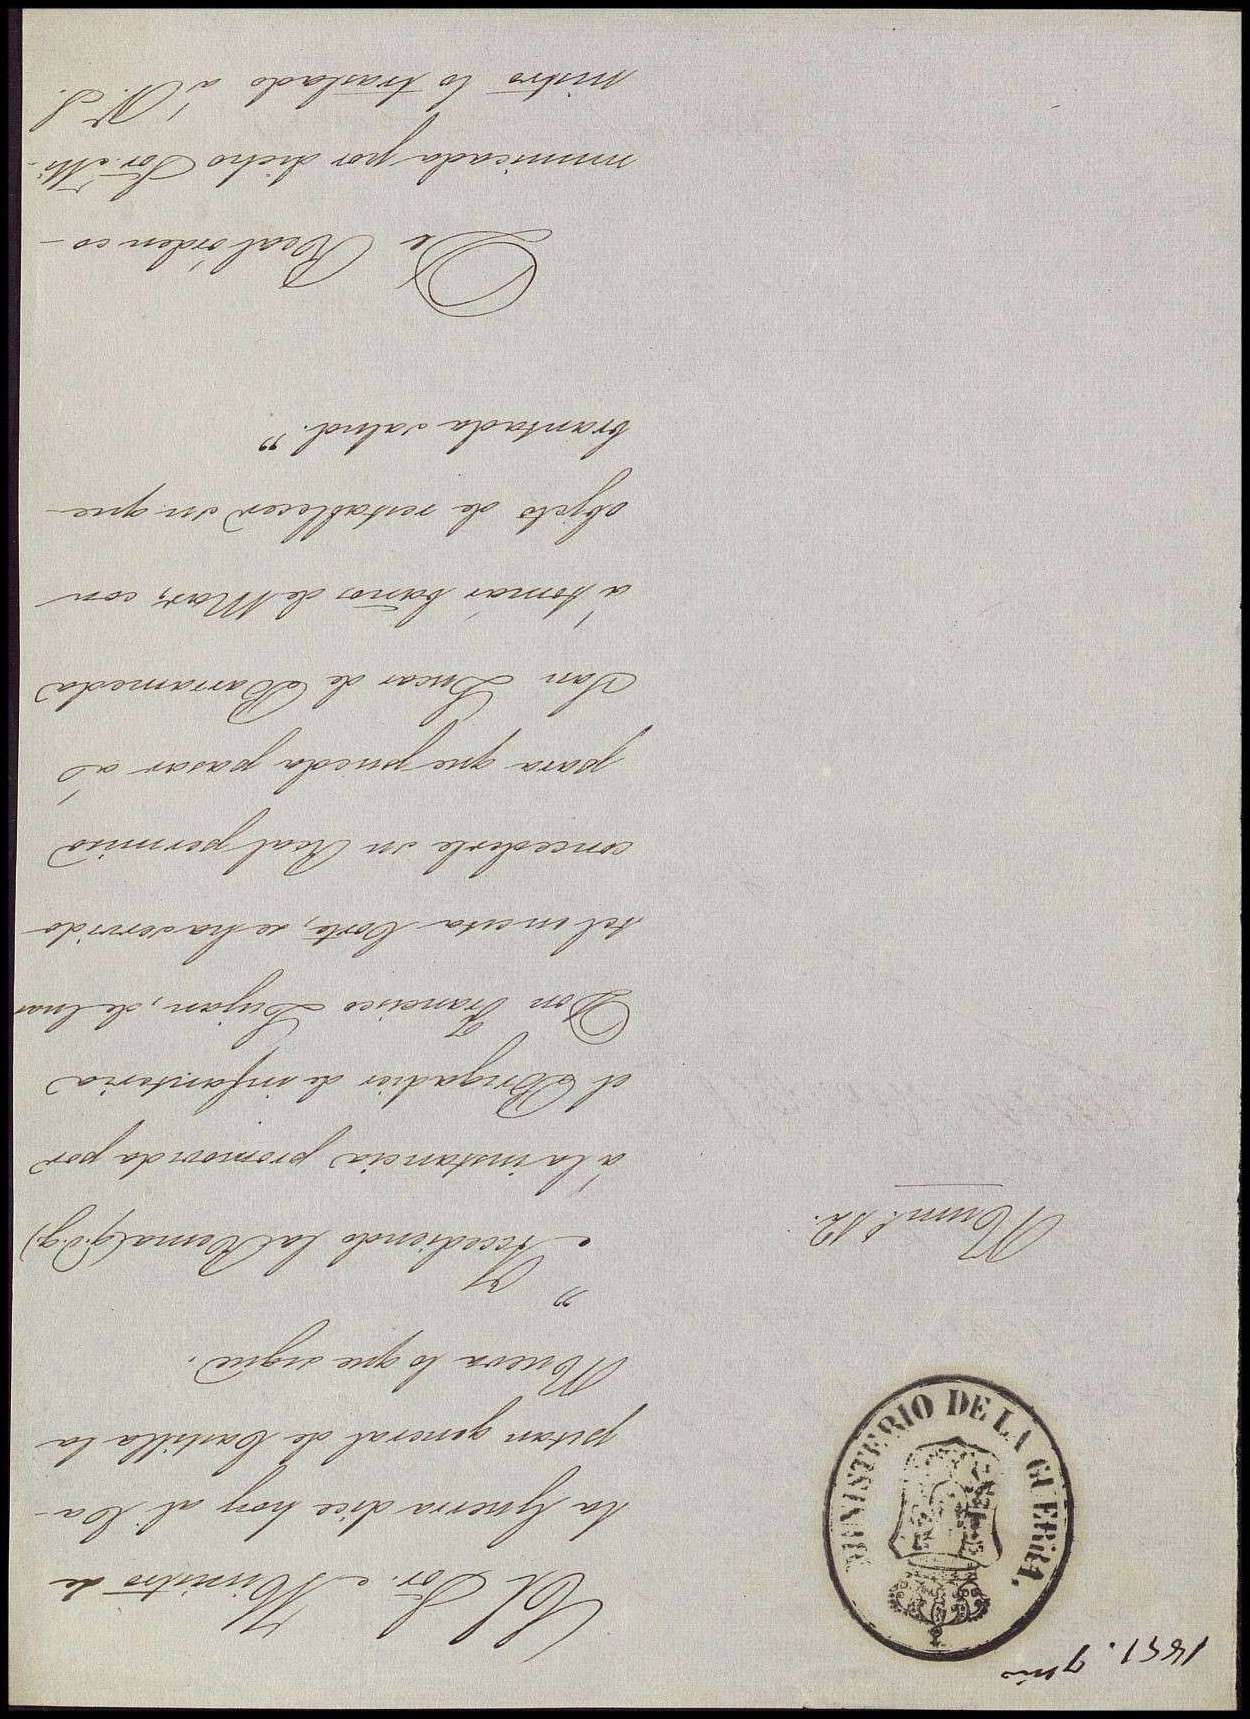 1851. 9
MINISTERIO DE LA GUERRA.
Num.º 12.
El Sor. Ministro de
la Guerra dice hoy al Ca-
pitan general de Castilla la
Nueva lo que sigue.
"Accediendo la Reina (q.D.g.)
á la instancia promovida por
el Brigadier de infanteria
Don Francisco Lujan, de cuar
tel en esta Corte, se ha servido
concederle su Real permiso
para que pueda pasar á
San Lucar de Barrameda
á tomar baños de Mar, con
objeto de restablecer su que-
brantada salud."
De Real órden co-
municada por dicho Sor. Mi-
nistro lo traslado á V. S.